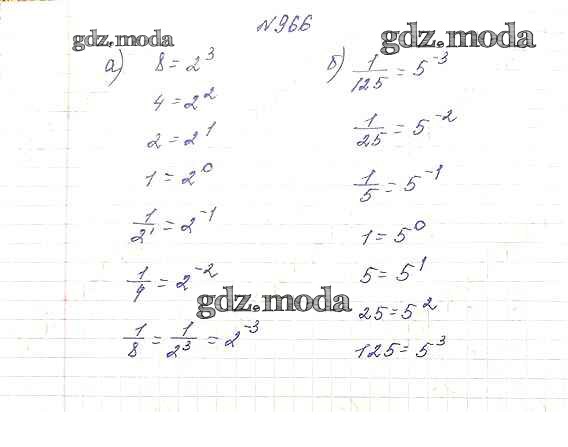 №966
gdz.moda
gdz.moda
а) 8 = 2³
4 = 2²
2 = 2¹
1 = 2⁰
1/2¹ = 2⁻¹
1/4 = 2⁻²
1/8 = 1/2³ = 2⁻³
б) 1/125 = 5⁻³
1/25 = 5⁻²
1/5 = 5⁻¹
1 = 5⁰
5 = 5¹
25 = 5²
125 = 5³
gdz.moda